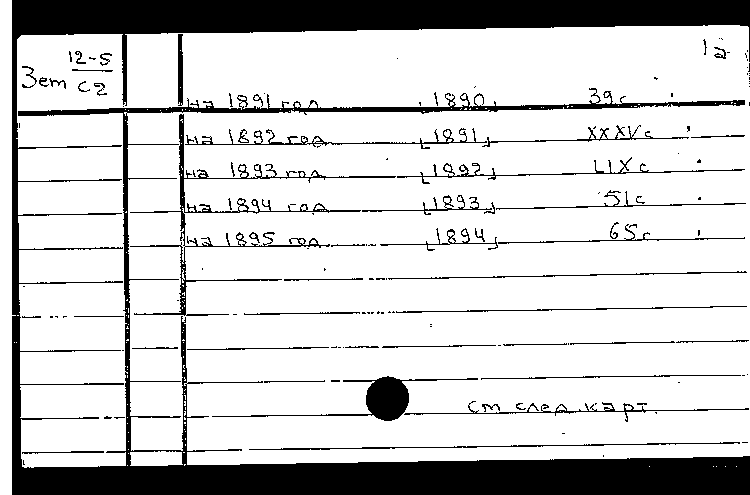 1а
Зем 12-5
С2
на 1891 год [1890] 39с
на 1892 год [1891] XXXVс
на 1893 год [1892] LIXс
на 1894 год [1893] 51с
на 1895 год [1894] 65с
см след карт.